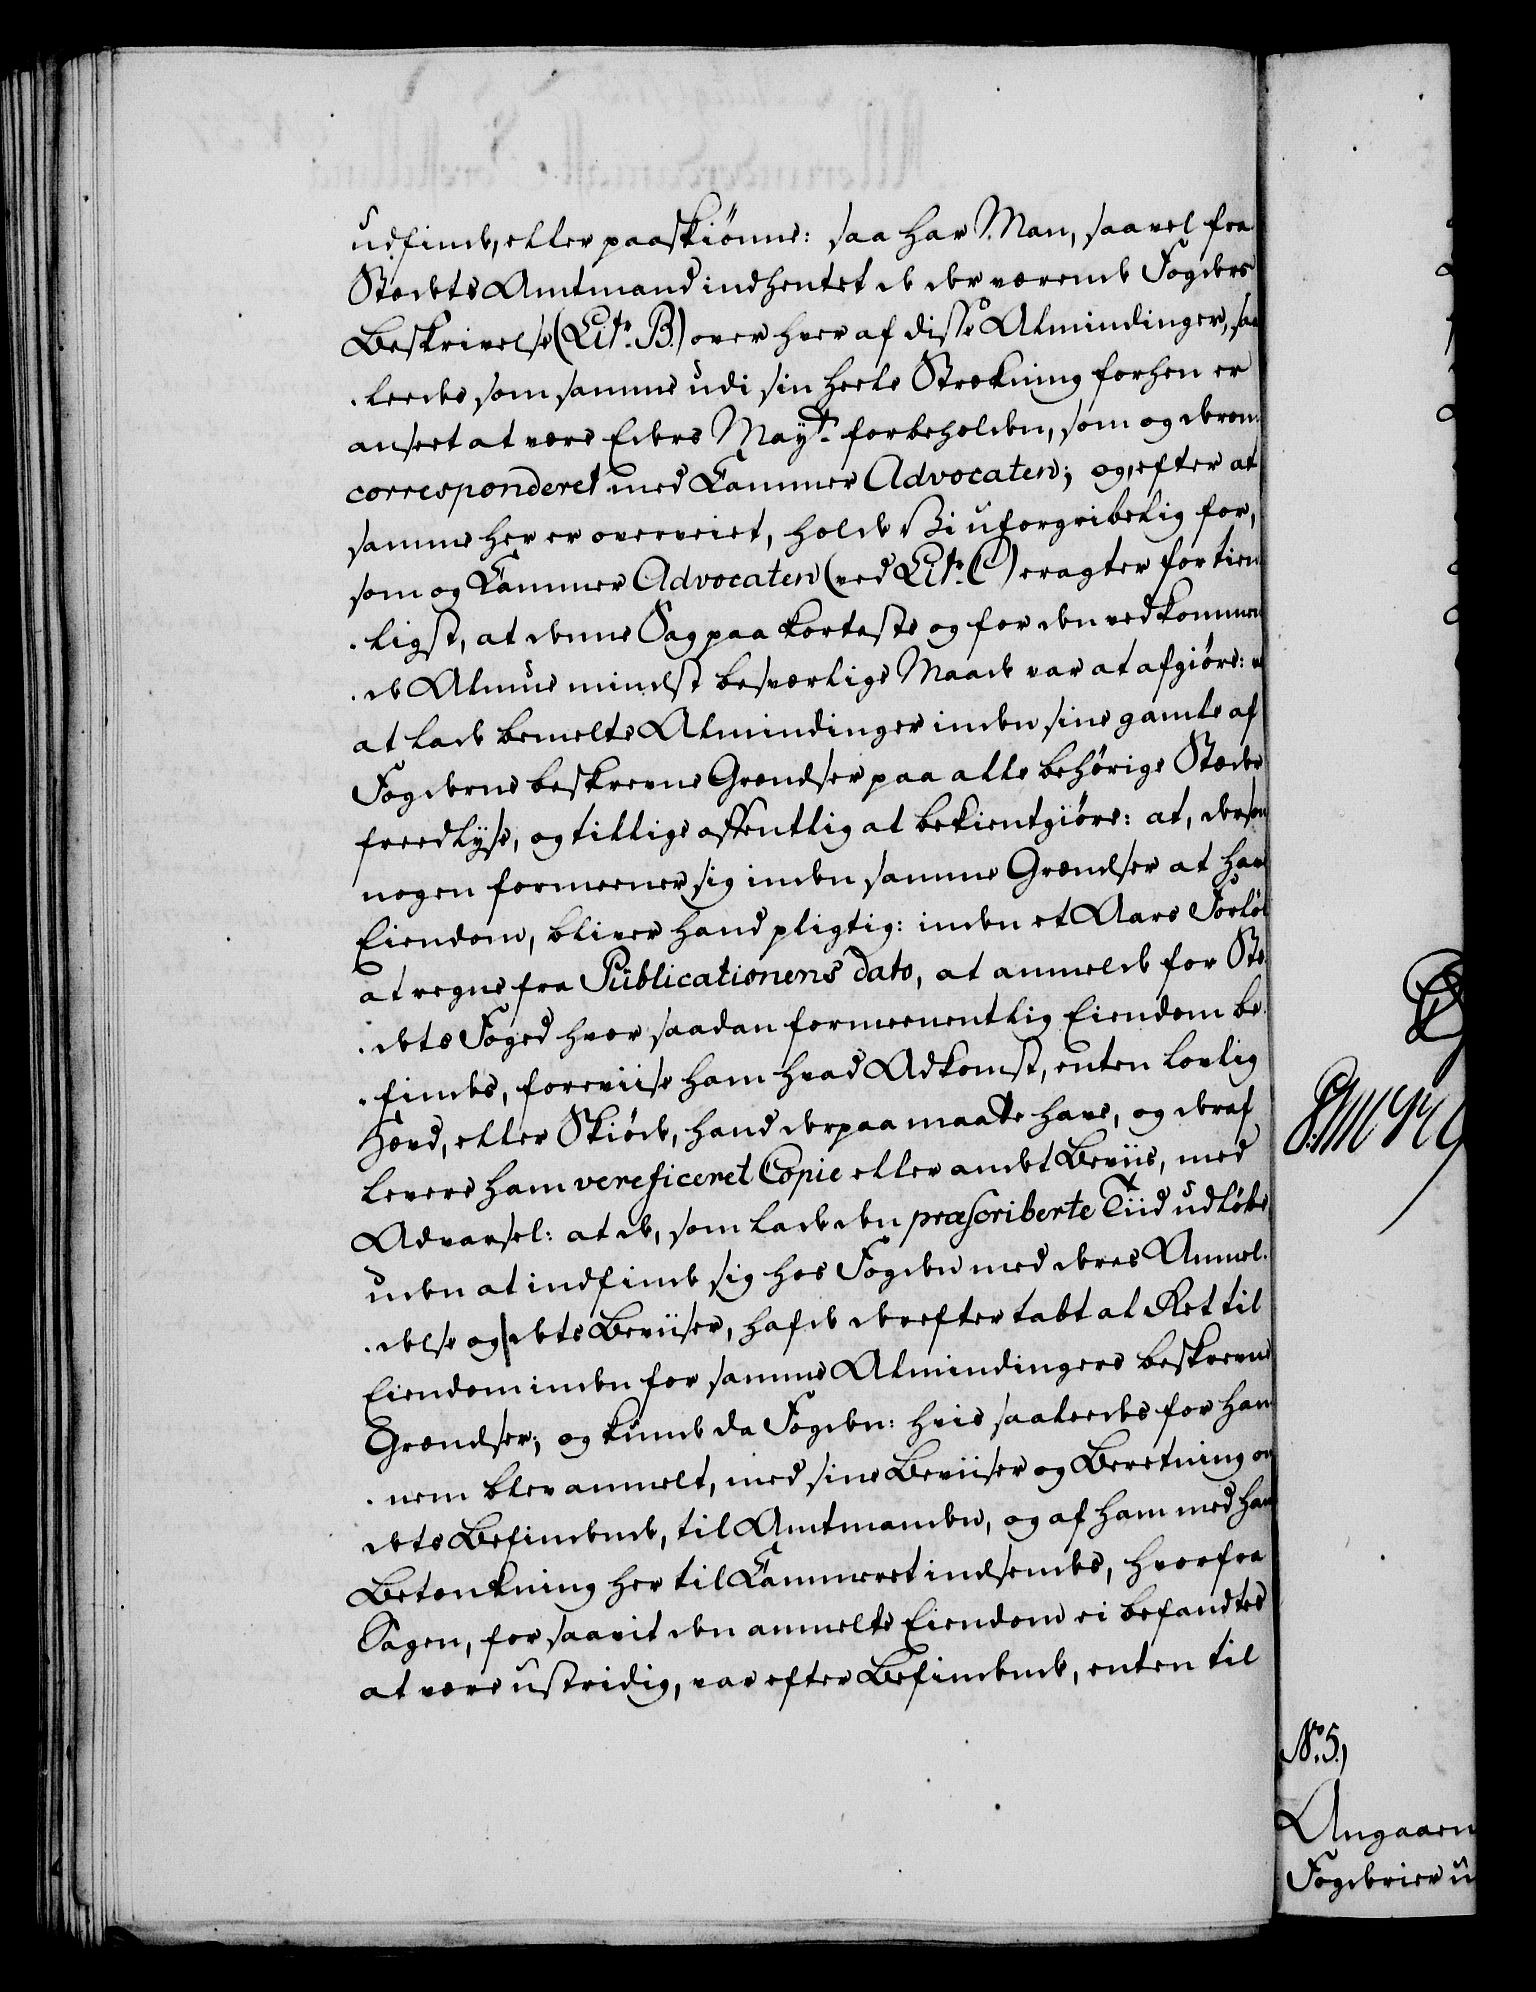 udfinde, eller paaskiønne: saa har Man, saavel fra
Stædets Amtmand indhentet de der værende Fogders
Beskrivelse (Litr. B.) over hver af disse Almindinger, saa
leedes som samme udi sin heele Strækning forhen er
anseet at være Eders Mayt. forbeholden, som og derom
corresponderet med Cammer Advocaten; og, efter at
samme her er overveiet, holde Vi uforgribelig for,
som og Cammer Advocaten (ved Litr. C) eragter fortien
ligst, at denne Sag paa korteste og for den vedkommen
de Almue mindst besværlige Maade var at afgiøre:
at lade bemelte Almindinger inden sine gamle af
Fogderne beskrevne Grændser paa alle behørige Stæder
freedlyse, og tillige offentlig at bekientgiøre: at, dersom
nogen formeener sig inden samme Grændser at have
Eiendom, bliver hand pligtig: inden et Aars Forløb
at regne fra Publicationens dato, at anmelde for Stæ
dets Foged hvor saadan formeenentlig Eiendom be
findes, foreviise ham hvad Adkomst, enten lovlig
Hævd, eller Skiøde, hand derpaa maatte have, og deraf
levere ham vereficeret Copie eller andet Beviis, med
Advarsel: at de, som lade den præscriberte Tiid udløbe
uden at indfinde sig hos Fogden med deres Anmel
delse og dets Beviiser, hafde derefter tabt al Ret til
Eiendom inden for samme Almindingers beskrevne
Grændser; og kunde da Fogden: hvis saaleedes for han
nem blev anmelt, med sine Beviiser og Beretning om
dets Befindende, til Amtmanden, og af ham med hans
Betænkning her til Cammeret indsendes, hvorfra
Sagen, for saavit den anmelte Eiendom ei befandtes
at være ustridig, var efter Befindende, enten til
No. 5.)
Angaaen
Fogderier u